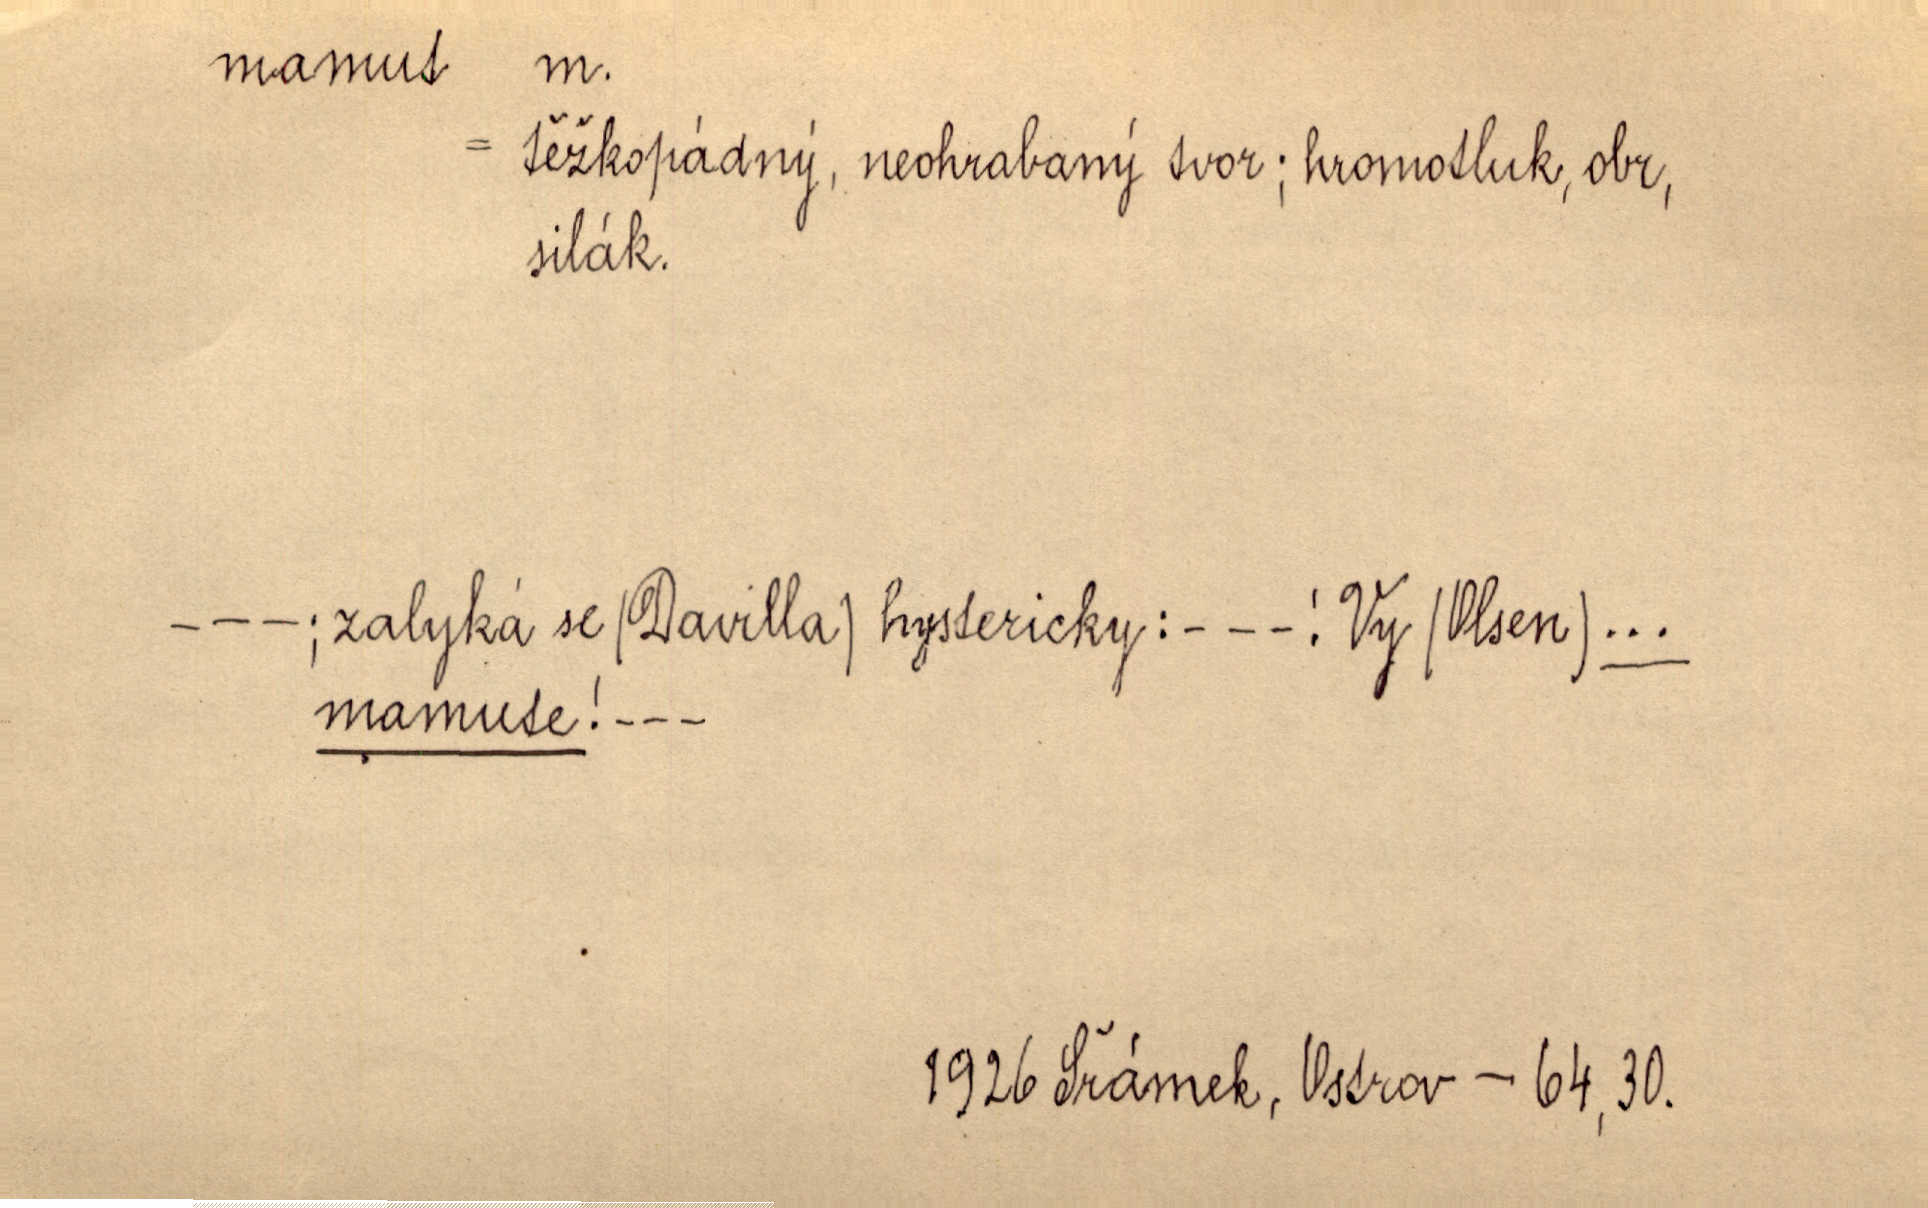 mamut m.
= těžkopádný, neohrabaný tvor; hromotluk, obr,
silák.
---; zalyká se (Davilla) hystericky: ---! Vy (Olsen) ...
mamute! ---
1926 Šrámek, Ostrov – 64, 30.